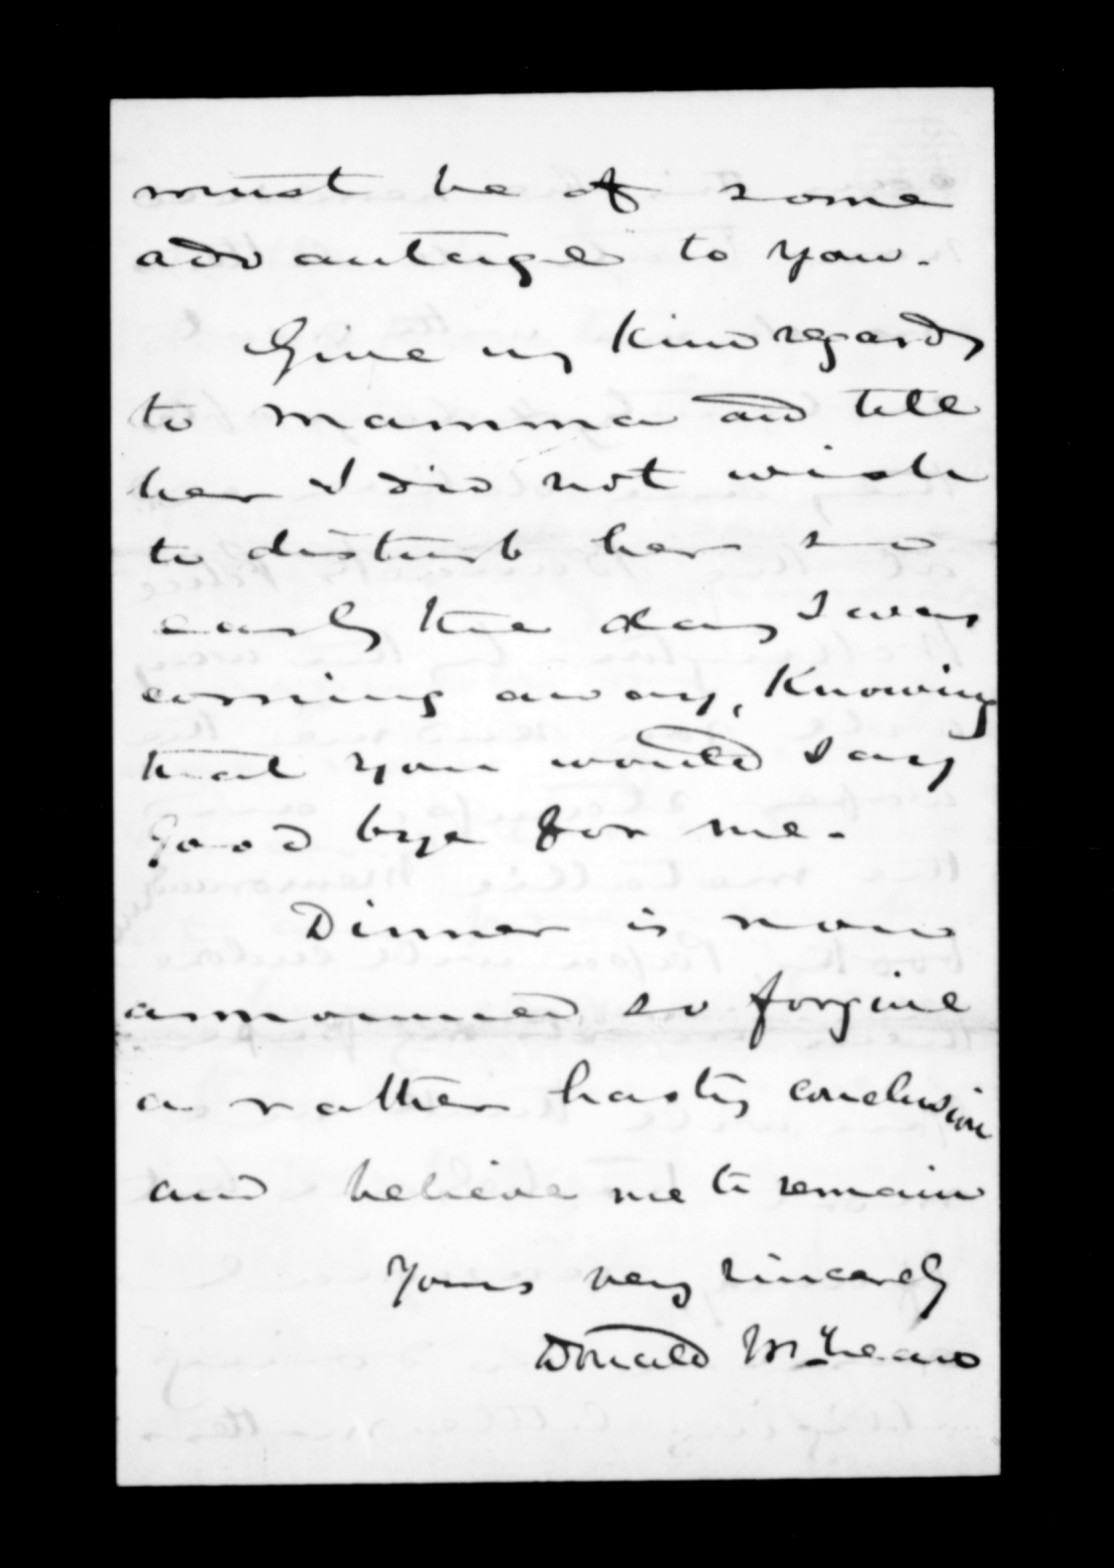 must be of some
advantage to you.
Give my kind regards
to Mamma and tell
her I did not wish
to disturb her so
early the day I was
coming away, knowing
that you would say
good bye for me.
Dinner is now
announced so forgive
a rather hasty conclusion
and believe me to remain
Yours very sincerely
Donald McLean